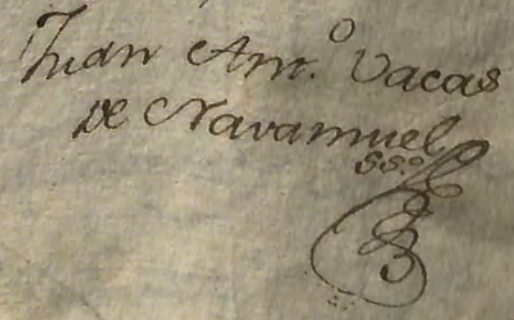 Juan Ant.º Vacas
De Navamuel
SS.º